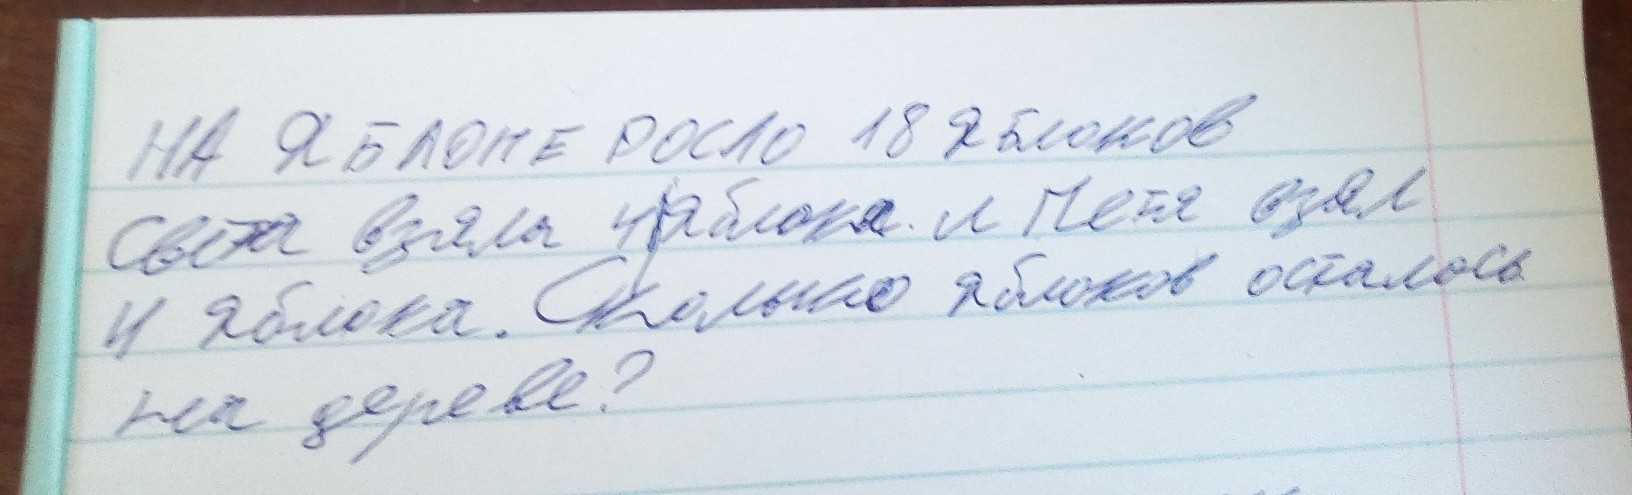 НА ЯБЛОНЕ РОСЛО 18 яблоков
Света взяла 4 яблока. и Петя взял
4 яблока. Сколько яблоков осталось
на дереве?